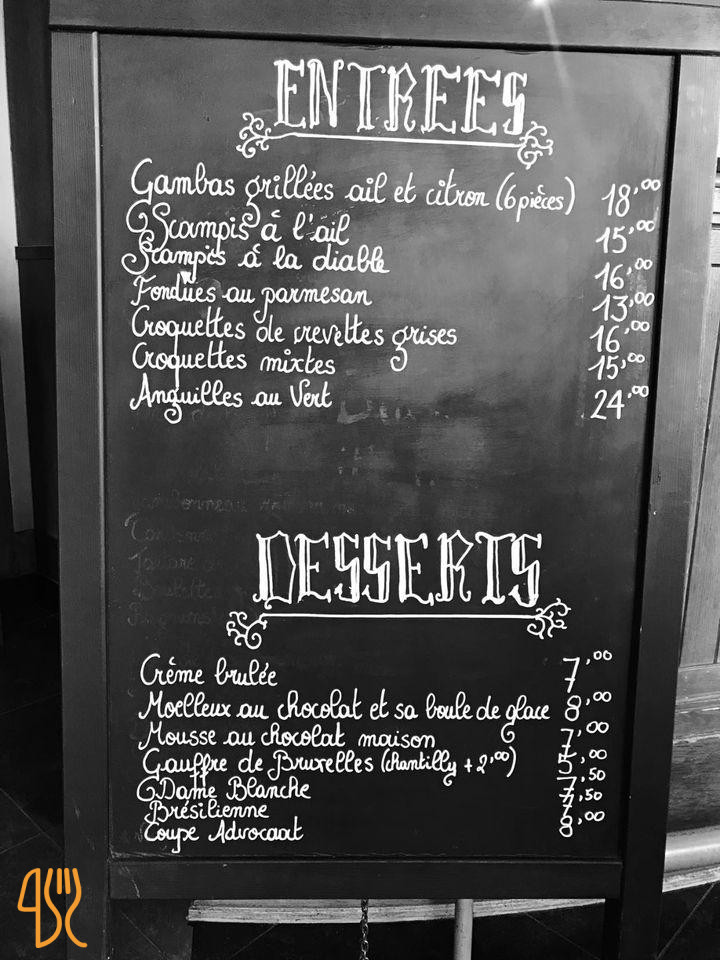 ENTREES
Gambas grillées ail et citron (6 pièces) 18,00
Scampis à l'ail 15,00
Scampis à la diable 16,00
Fondues au parmesan 13,00
Croquettes de crevettes grises 16,00
Croquettes mixtes 15,00
Anguilles au Vert 24,00
DESSERTS
Crème brulée 7,00
Moelleux au chocolat et sa boule de glace 8,00
Mousse au chocolat maison 7,00
Gauffre de Bruxelles (chantilly + 2,00) 5,00
Dame Blanche 7,50
Brésilienne 7,50
Coupe Advocaat 8,00